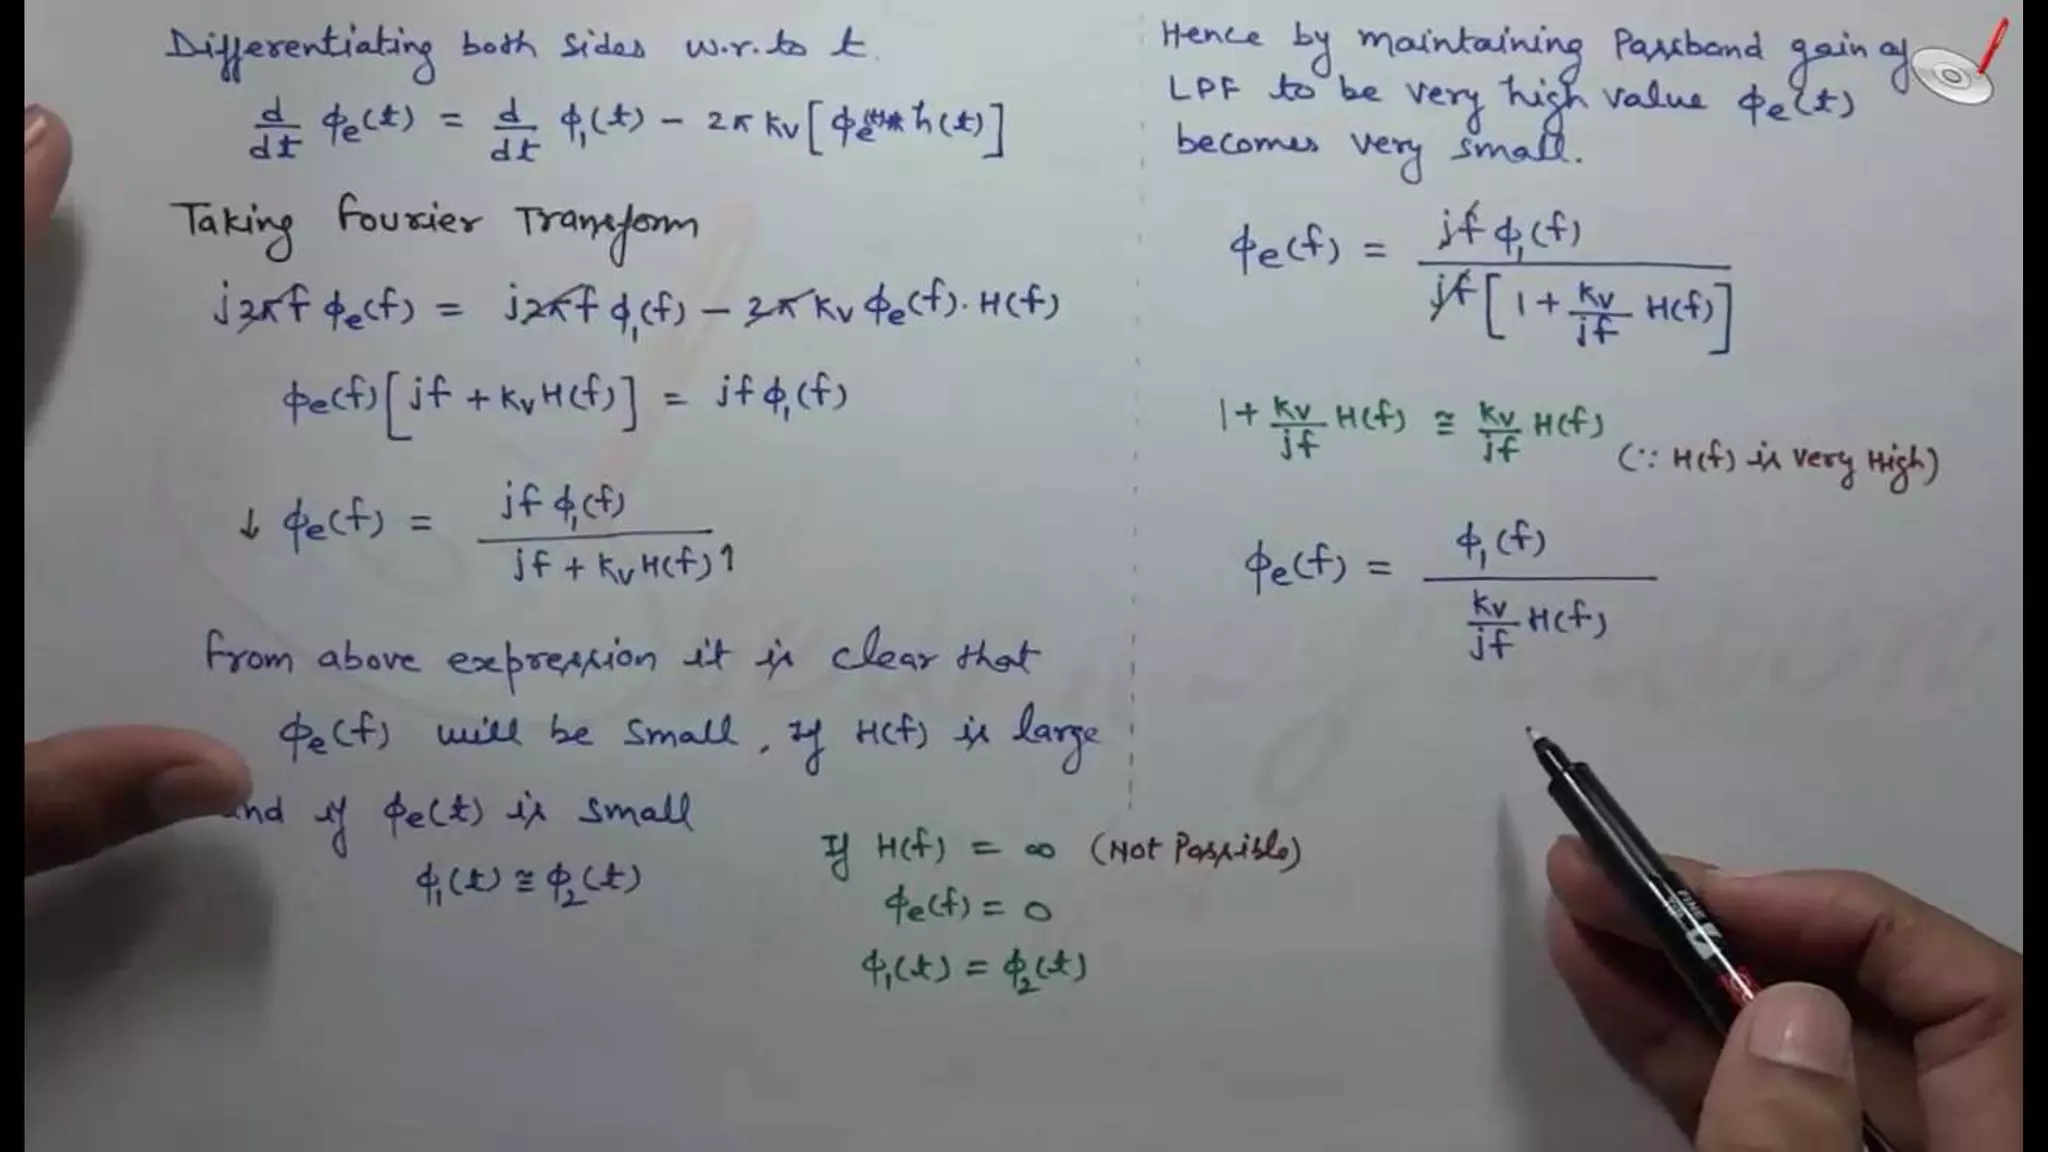 Differentiating both sides w.r.to t.
d/dt ϕe(t) = d/dt ϕ1(t) - 2π kv [ϕe(t) * h(t)]
Taking Fourier Transform
j2πf ϕe(f) = j2πf ϕ1(f) - 2π kv ϕe(f). H(f)
ϕe(f) [jf + kv H(f)] = jf ϕ1(f)
↓ ϕe(f) = jf ϕ1(f) / jf + kv H(f) ↑
From above expression it is clear that
ϕe(f) will be small, if H(f) is large
and if ϕe(t) is small
ϕ1(t) ≅ ϕ2(t)
If H(f) = ∞ (Not Possible)
ϕe(f) = 0
ϕ1(t) = ϕ2(t)
Hence by maintaining Passband gain of
LPF to be very high value ϕe(t)
becomes very small.
ϕe(f) = jf ϕ1(f) / jf [1 + kv/jf H(f)]
1 + kv/jf H(f) ≅ kv/jf H(f) (∵ H(f) is very High)
ϕe(f) = ϕ1(f) / kv/jf H(f)
FINE